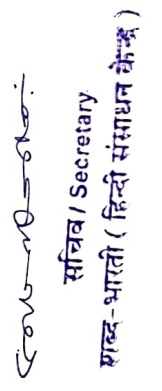 सचिव / Secretary
शब्द-भारती ( हिन्दी संसाधन केन्द्र )